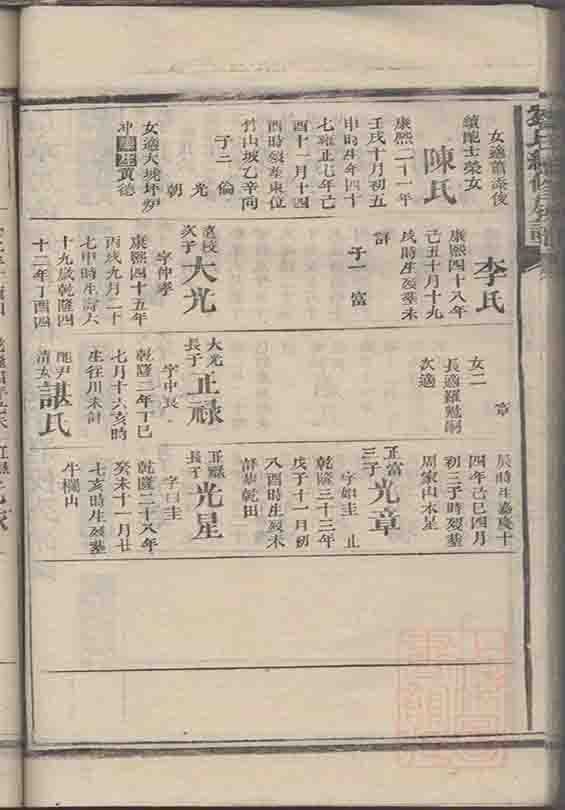 女適蕭泰俊
續配士榮女
陳氏
康熙二十一年
壬戌十月初五
申時生年四十
七雍正七年己
酉十一月十四
酉時歿葬東位
竹山坡乙辛向
子二 倫
光
朝
女適大塊坪炉
冲庠生黃德
李氏
康熙四十八年
己丑十月十九
戌時生歿葬未
詳
子一 富
次子
大光
字仲孝
康熙四十五年
丙戌九月二十
七申時生壽六
十九歿乾隆四
十二年丁酉四
女二 章
長適羅魁嗣
次適
大光
長子
正祿
字中長
乾隆二年丁巳
七月十六亥時
生往川未計
配尹
清女
諶氏
辰時生嘉慶十
四年己巳四月
初三子時歿葬
周家山木星
正富
三子
光章
字如圭 止
乾隆三十三年
戊子十一月初
八酉時生歿未
詳葬乾田
正縣
長子
光星
字曰圭
乾隆二十八年
癸未十一月廿
七亥時生歿葬
牛欄山